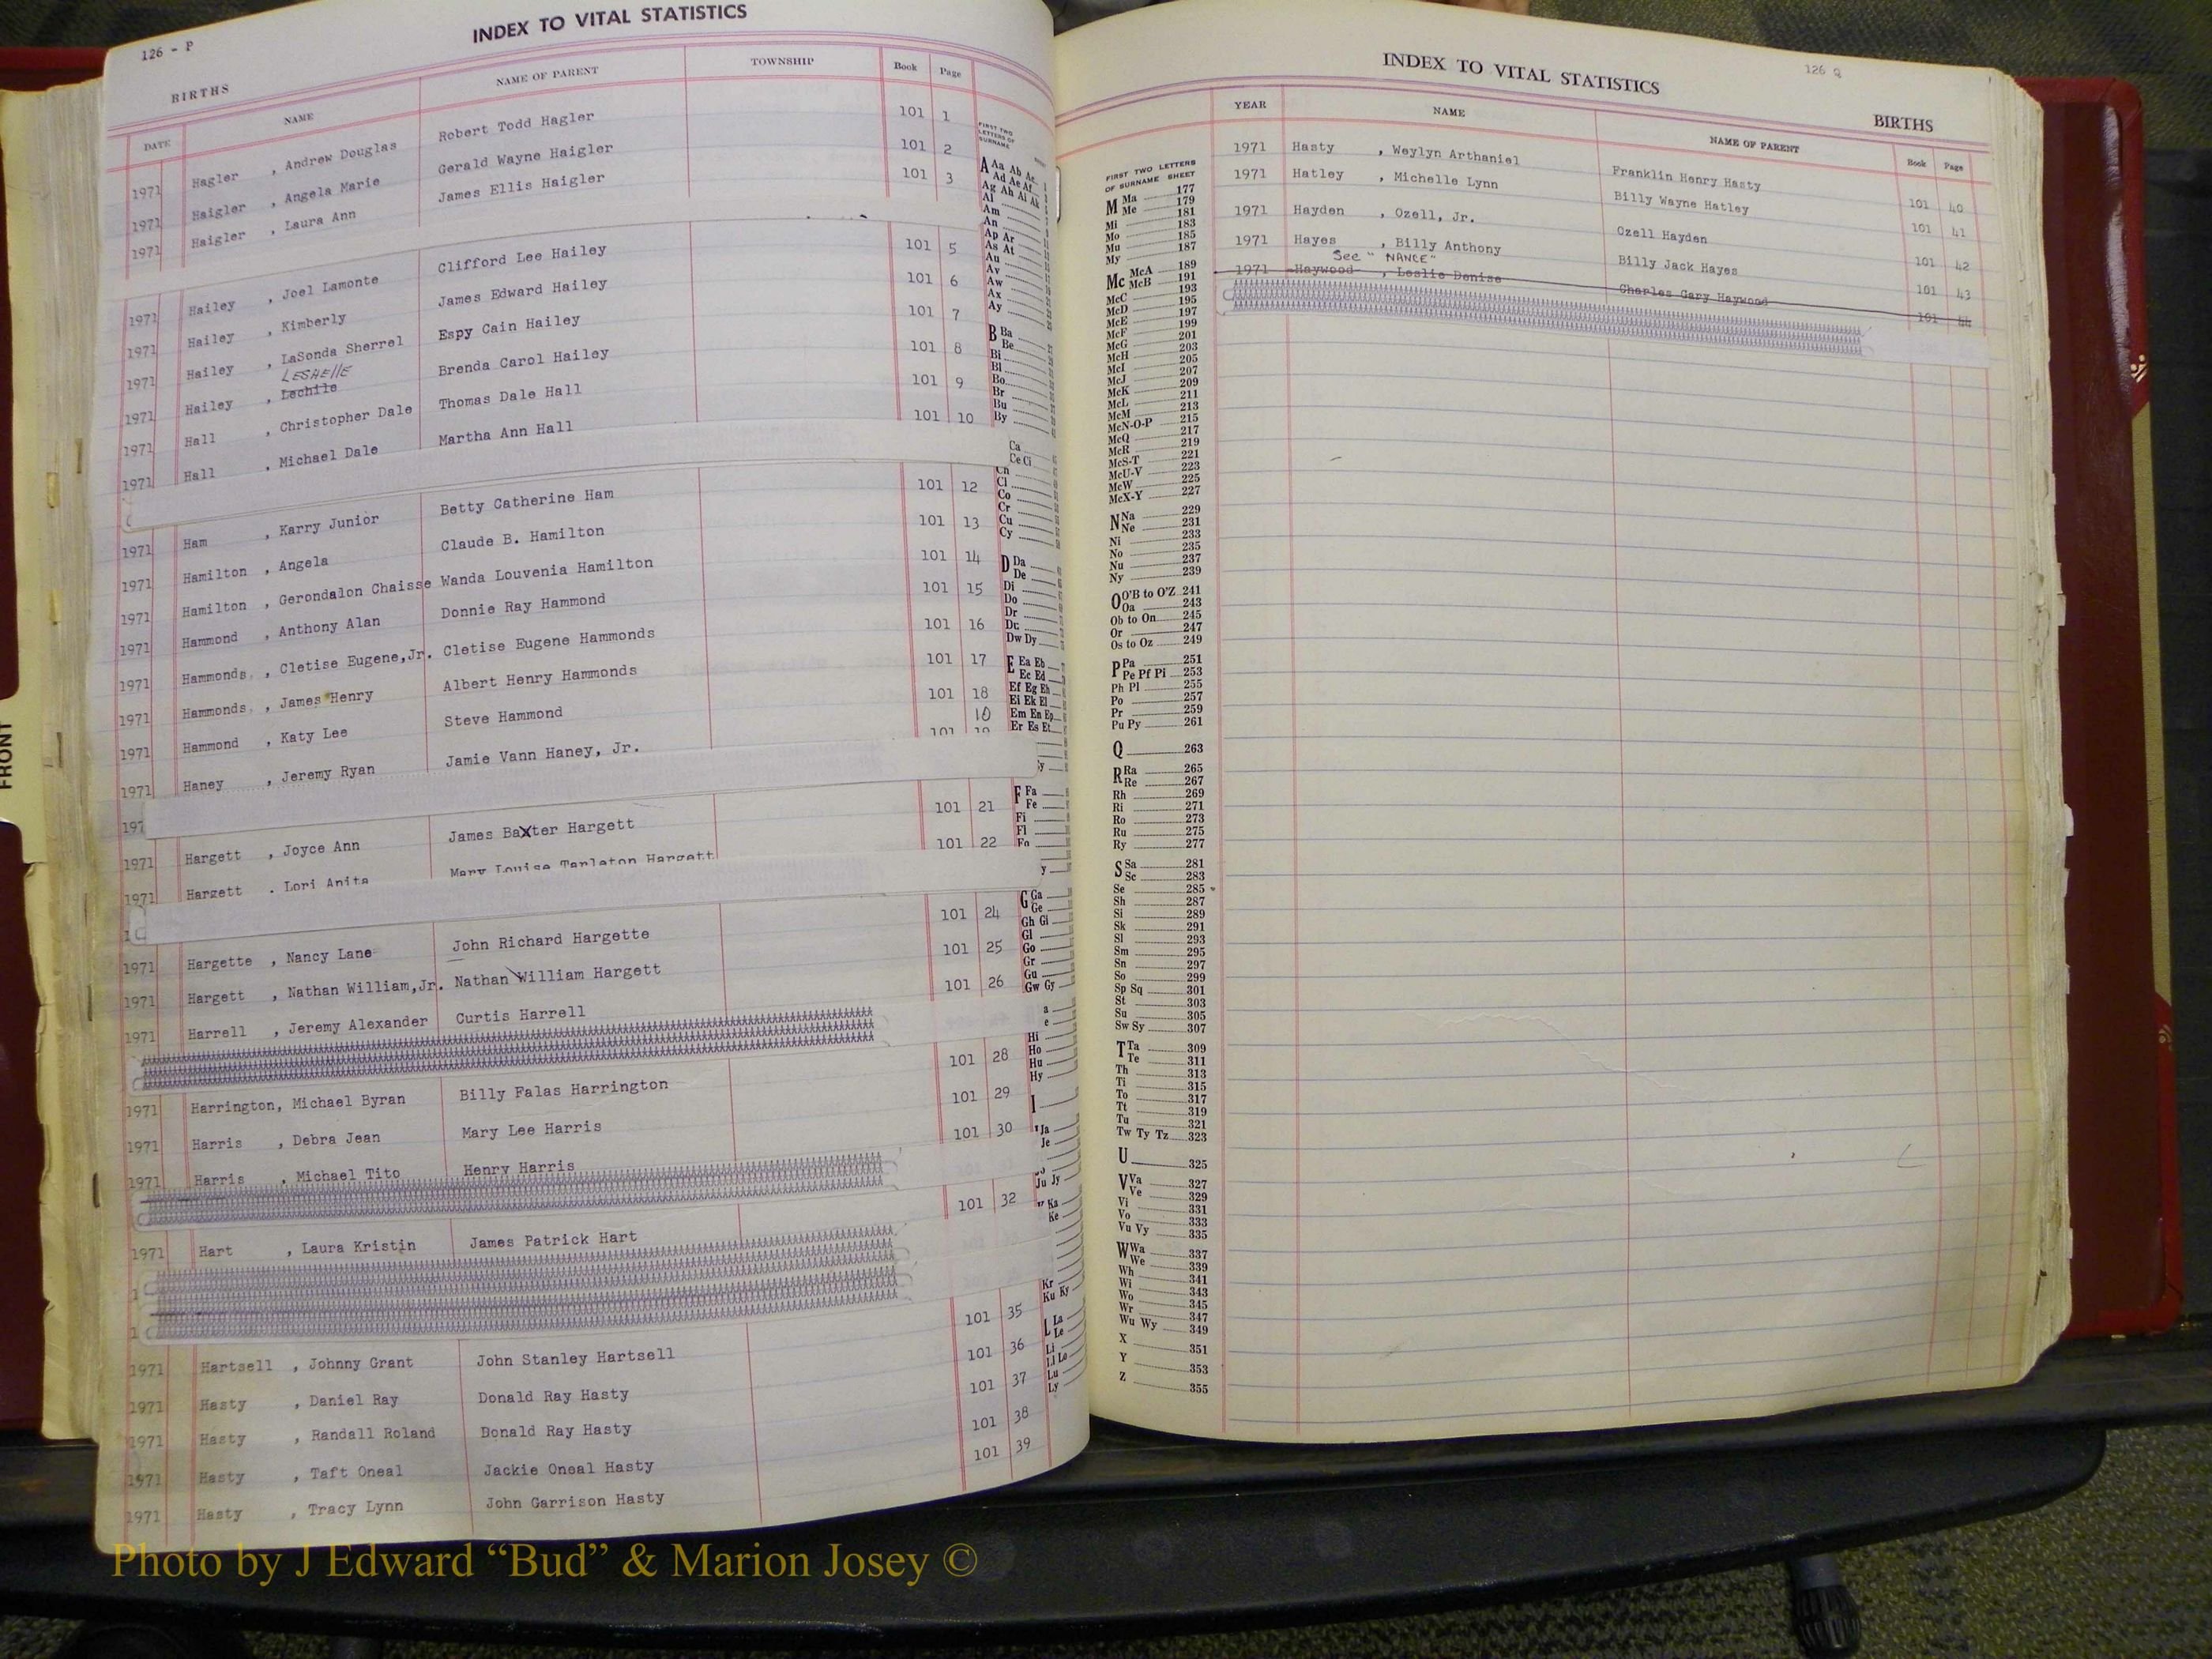 126 - P
INDEX TO VITAL STATISTICS
BIRTHS
DATE NAME NAME OF PARENT TOWNSHIP Book Page
1971 Hagler , Andrew Douglas Robert Todd Hagler 101 1
1971 Haigler , Angela Marie Gerald Wayne Haigler 101 2
1971 Haigler , Laura Ann James Ellis Haigler 101 3
1971 Hailey , Joel Lamonte Clifford Lee Hailey 101 5
1971 Hailey , Kimberly James Edward Hailey 101 6
1971 Hailey , LaSonda Sherrel Espy Cain Hailey 101 7
LESHELLE
1971 Hailey , Lechile Brenda Carol Hailey 101 8
1971 Hall , Christopher Dale Thomas Dale Hall 101 9
1971 Hall , Michael Dale Martha Ann Hall 101 10
1971 Ham , Karry Junior Betty Catherine Ham 101 12
1971 Hamilton , Angela Claude B. Hamilton 101 13
1971 Hamilton , Gerondalon Chaisse Wanda Louvenia Hamilton 101 14
1971 Hammond , Anthony Alan Donnie Ray Hammond 101 15
1971 Hammonds , Cletise Eugene,Jr. Cletise Eugene Hammonds 101 16
1971 Hammonds , James Henry Albert Henry Hammonds 101 17
1971 Hammond , Katy Lee Steve Hammond 101 18
1971 Haney , Jeremy Ryan Jamie Vann Haney, Jr. 101
197
1971 Hargett , Joyce Ann James Baxter Hargett 101 21
1971 Hargett . Lori Anita Mary Louise Tarleton Hargett 101 22
1971 Hargette , Nancy Lane John Richard Hargette 101 24
1971 Hargett , Nathan William,Jr. Nathan William Hargett 101 25
1971 Harrell , Jeremy Alexander Curtis Harrell 101 26
1971 Harrington, Michael Byran Billy Falas Harrington 101 28
1971 Harris , Debra Jean Mary Lee Harris 101 29
1971 Harris , Michael Tito Henry Harris 101 30
1971 Hart , Laura Kristin James Patrick Hart 101 32
1971 Hartsell , Johnny Grant John Stanley Hartsell 101 35
1971 Hasty , Daniel Ray Donald Ray Hasty 101 36
1971 Hasty , Randall Roland Donald Ray Hasty 101 37
1971 Hasty , Taft Oneal Jackie Oneal Hasty 101 38
1971 Hasty , Tracy Lynn John Garrison Hasty 101 39
FIRST TWO
LETTERS OF
SURNAME
A Aa Ab Ac
Ad Ae Af
Ag Ah Ai Ak
Al
Am
An
Ap Ar
As At
Au
Av
Aw
Ax
Ay
B Ba
Be
Bi
Bl
Bo
Br
Bu
By
Ca
Ce Ci
Ch
Cl
Co
Cr
Cu
Cy
D Da
De
Di
Do
Dr
Du
Dw Dy
E Ea Eb
Ec Ed
Ef Eg Eh
Ei Ek El
Em En Ep
Er Es Et
F Fa
Fe
Fi
Fl
Fo
G Ga
Ge
Gh Gi
Gl
Go
Gr
Gu
Gw Gy
Hi
Ho
Hu
Hy
I
Ja
Je
Ju Jy
Ka
Ke
Kr
Ku Ky
L La
Le
Li
Ll Lo
Lu
Ly
INDEX TO VITAL STATISTICS
126 Q
BIRTHS
YEAR NAME NAME OF PARENT Book Page
1971 Hasty , Weylyn Arthaniel Franklin Henry Hasty 101 40
1971 Hatley , Michelle Lynn Billy Wayne Hatley 101 41
1971 Hayden , Ozell, Jr. Ozell Hayden 101 42
1971 Hayes , Billy Anthony Billy Jack Hayes 101 43
See "NANCE"
1971 Haywood , Leslie Denise Charles Gary Haywood 101 44
FIRST TWO LETTERS
OF SURNAME SHEET
M Ma 177
Me 179
Mi 181
Mo 183
Mu 185
My 187
Mc McA 189
McB 191
McC 193
McD 195
McE 197
McF 199
McG 201
McH 203
McI 205
McJ 207
McK 209
McL 211
McM 213
McN-O-P 215
McQ 217
McR 219
McS-T 221
McU-V 223
McW 225
McX-Y 227
N Na 229
Ne 231
Ni 233
No 235
Nu 237
Ny 239
O O'B to O'Z 241
Oa 243
Ob to On 245
Or 247
Os to Oz 249
P Pa 251
Pe Pf Pi 253
Ph Pl 255
Po 257
Pr 259
Pu Py 261
Q 263
R Ra 265
Re 267
Rh 269
Ri 271
Ro 273
Ru 275
Ry 277
S Sa 281
Sc 283
Se 285
Sh 287
Si 289
Sk 291
Sl 293
Sm 295
Sn 297
So 299
Sp Sq 301
St 303
Su 305
Sw Sy 307
T Ta 309
Te 311
Th 313
Ti 315
To 317
Tt 319
Tu 321
Tw Ty Tz 323
U 325
V Va 327
Ve 329
Vi 331
Vo 333
Vu Vy 335
W Wa 337
We 339
Wh 341
Wi 343
Wo 345
Wr 347
Wu Wy 349
X 351
Y 353
Z 355
FRONT
Photo by J Edward “Bud” & Marion Josey ©